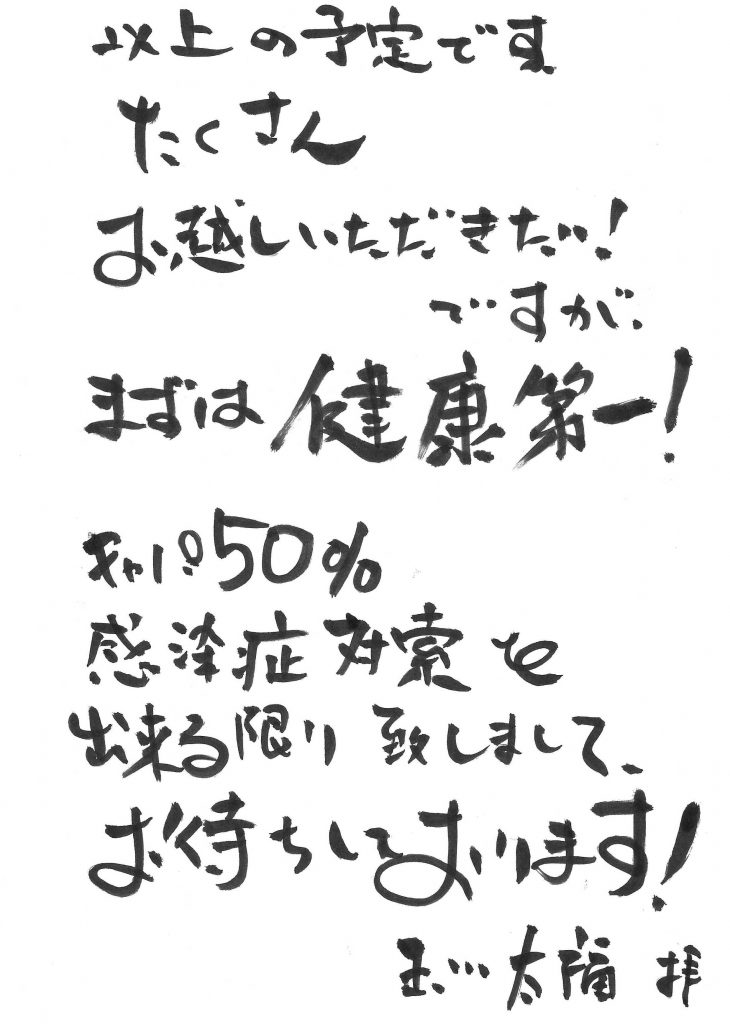 以上の予定です
たくさん
お越しいただきたい!
ですが、
まずは健康第一!
キャパ50%
感染症対策を
出来る限り致しまして、
お待ちしております!
玉川太福 拝